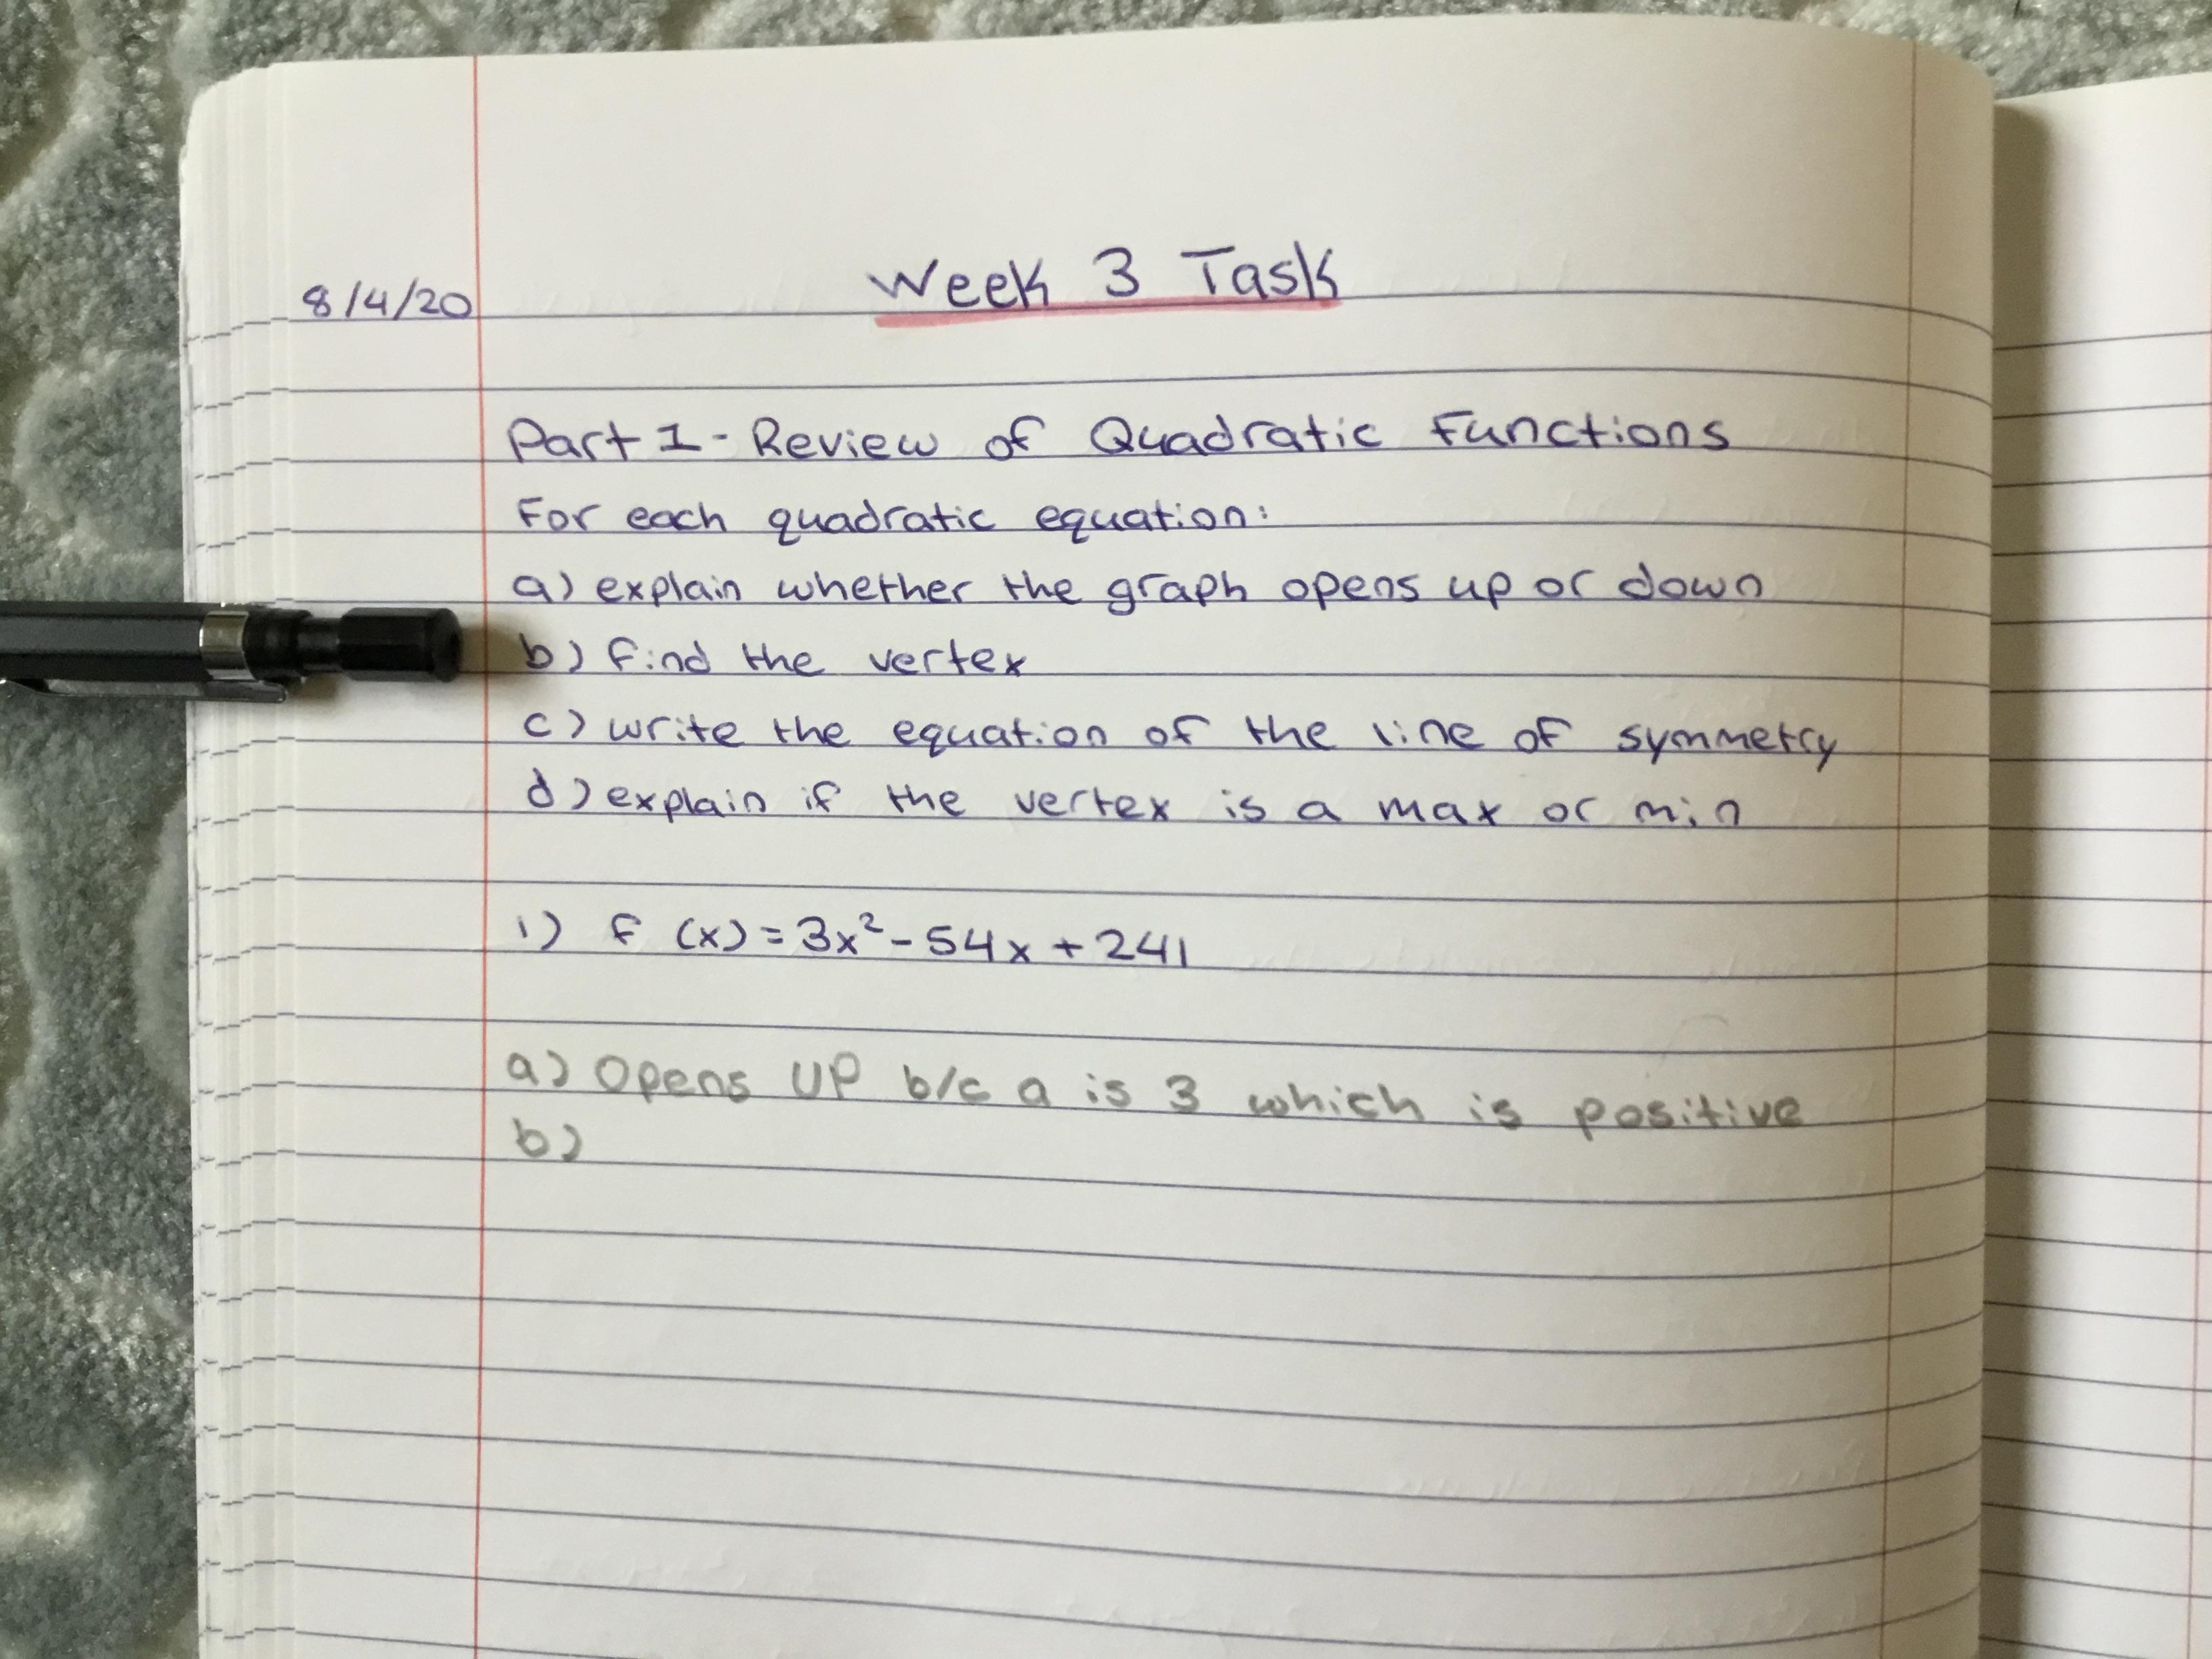 Week 3 Task
8/4/20
Part 1 - Review of Quadratic Functions
For each quadratic equation:
a) explain whether the graph opens up or down
b) find the vertex
c) write the equation of the line of symmetry
d) explain if the vertex is a max or min
1) f (x) = 3x² - 54x + 241
a) Opens UP b/c a is 3 which is positive
b)